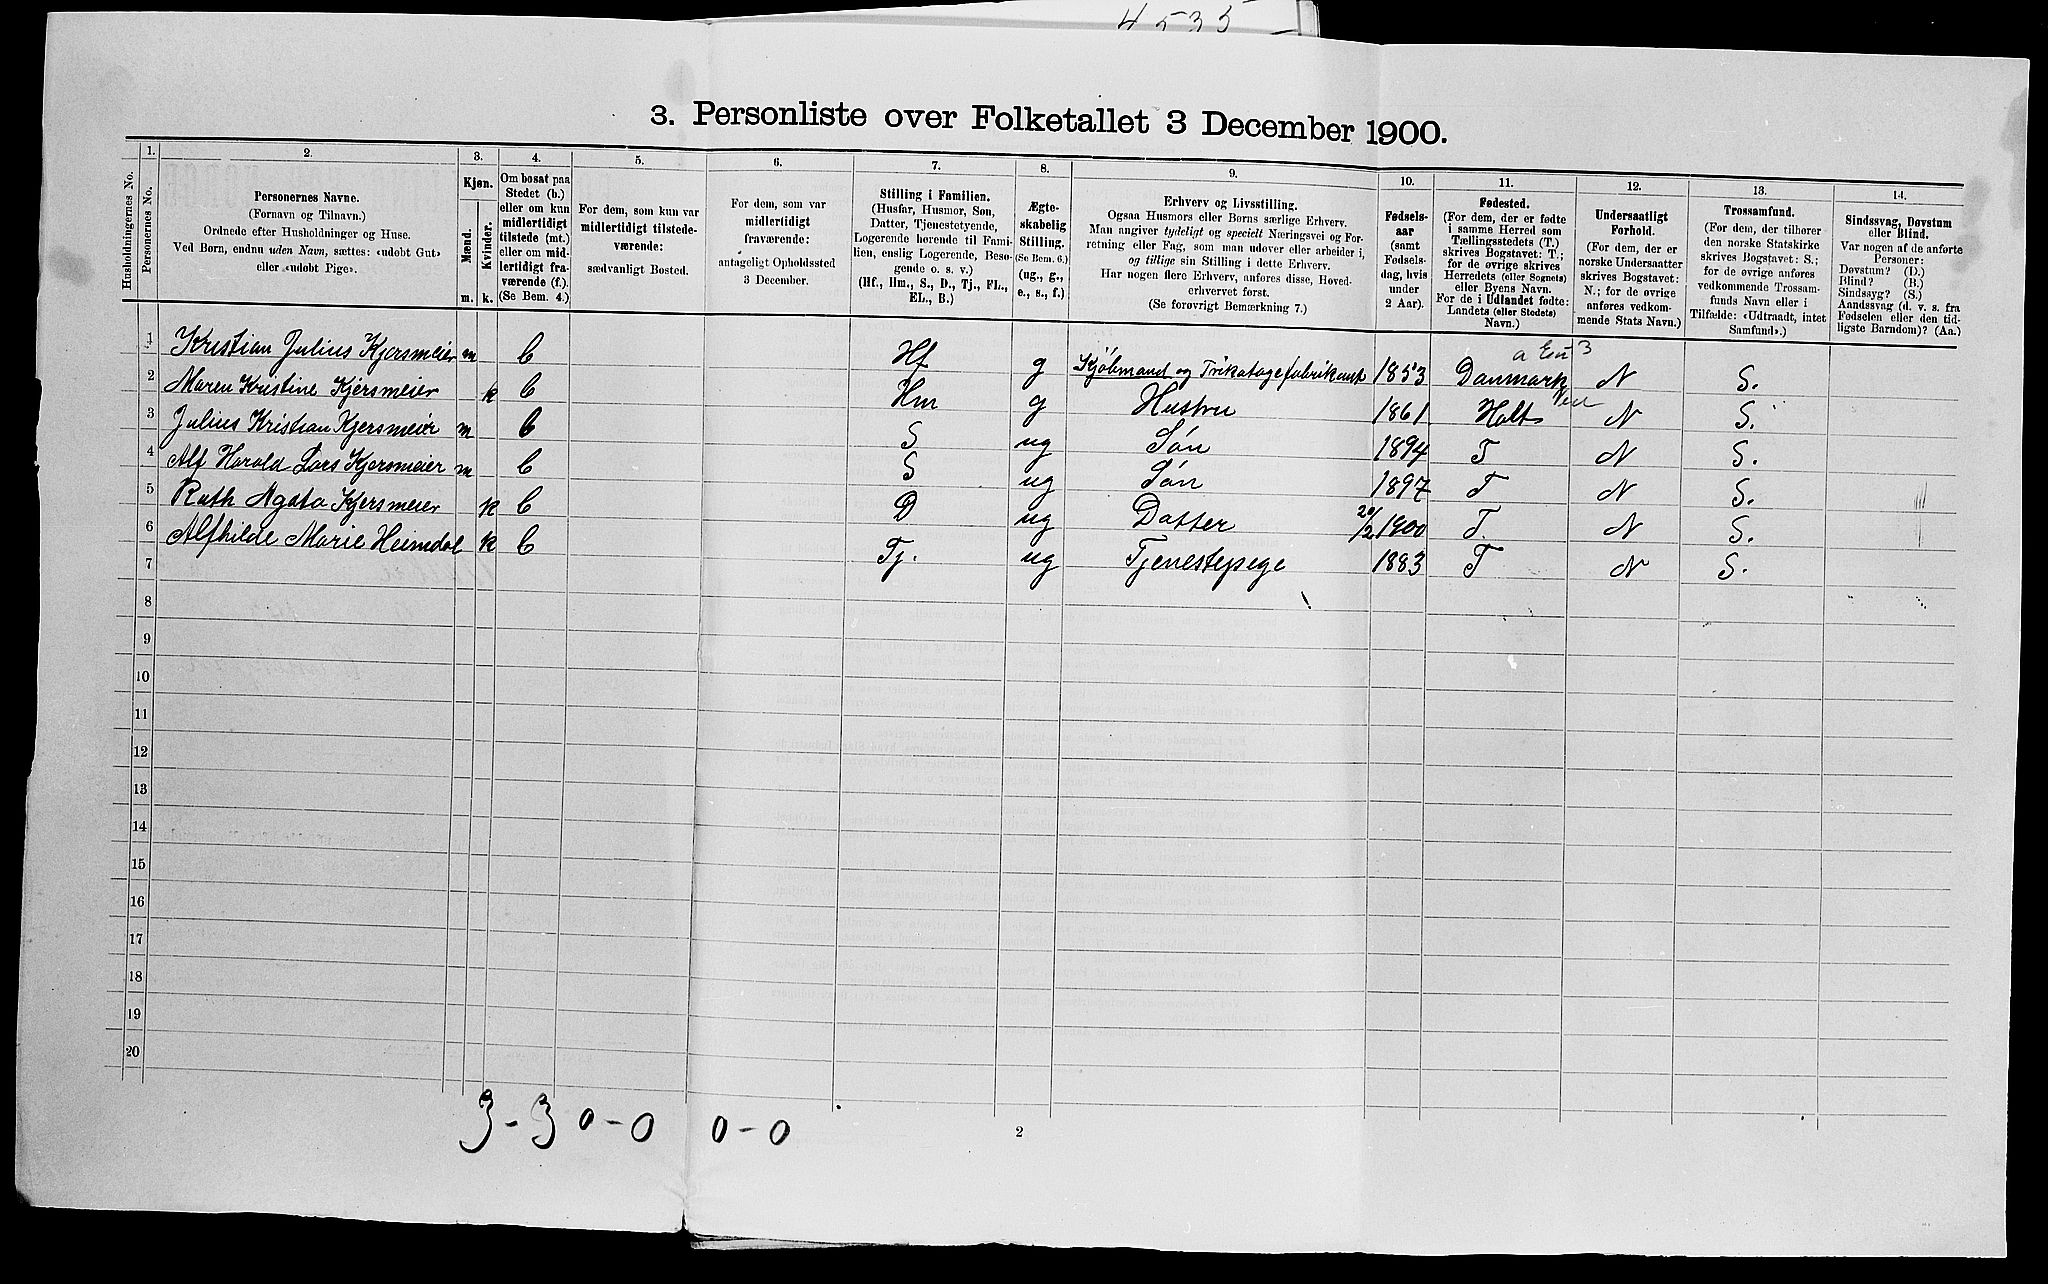 4535
3. Personliste over Folketallet 3 December 1900.
Husholdningernes No.
1.
Personernes No.
2.
Personernes Navne.
(Fornavn og Tilnavn.)
Ordnede efter Husholdninger og Huse.
Ved Børn, endnu uden Navn, sættes: «udøbt Gut»
eller «udøbt Pige».
3.
Kjøn.
Mænd.
Kvinder.
m.
k.
4.
Om bosat paa
Stedet (b.)
eller om kun
midlertidigt
tilstede (mt.)
eller om mid-
lertidigt fra-
værende (f.).
(Se Bem. 4.)
5.
For dem, som kun var
midlertidigt tilstede-
værende:
sædvanligt Bosted.
6.
For dem, som var
midlertidigt
fraværende:
antageligt Opholdssted
3 December.
7.
Stilling i Familien.
(Husfar, Husmor, Søn,
Datter, Tjenestetyende,
Logerende hørende til Fami-
lien, enslig Logerende, Besø-
gende o. s. v.)
(Hf., Hm., S., D., Tj., FL.,
EL., B.)
8.
Ægte-
skabelig
Stilling.
(Se Bem. 6.)
(ug., g.,
e., s., f.)
9.
Erhverv og Livsstilling.
Ogsaa Husmors eller Børns særlige Erhverv.
Man angiver tydeligt og specielt Næringsvei og For-
retning eller Fag, som man udøver eller arbeider i,
og tillige sin Stilling i dette Erhverv.
Har nogen flere Erhverv, anføres disse, Hoved-
erhvervet først.
(Se forøvrigt Bemærkning 7.)
10.
Fødsels-
aar
(samt
Fødsels-
dag, hvis
under
2 Aar).
11.
Fødested.
(For dem, der er fødte
i samme Herred som
Tællingsstedets (T.)
skrives Bogstavet: T.;
for de øvrige skrives
Herredets (eller Sognets)
eller Byens Navn.
For de i Udlandet fødte:
Landets (eller Stedets)
Navn.)
12.
Undersaatligt
Forhold.
(For dem, der er
norske Undersaatter
skrives Bogstavet:
N.; for de øvrige
anføres vedkom-
mende Stats Navn.)
13.
Trossamfund.
(For dem, der tilhører
den norske Statskirke
skrives Bogstavet: S.;
for de øvrige anføres
vedkommende Trossam-
funds Navn eller i
Tilfælde: «Udtraadt, intet
Samfund».)
14.
Sindssvag, Døvstum
eller Blind.
Var nogen af de anførte
Personer:
Døvstum? (D.)
Blind? (B.)
Sindssyg? (S.)
Aandssvag (d. v. s. fra
Fødselen eller den tid-
ligste Barndom)? (Aa.)
1 Kristian Julius Kjersmeier m b Hf g Kjøbmand og Trikotagefabrikant 1853 Danmark N S.
2 Maren Kristine Kjersmeier k b Hm g Hustru 1861 Holt N S.
3 Julius Kristian Kjersmeier m b S ug Søn 1894 T N S.
4 Alf Harald Lars Kjersmeier m b S ug Søn 1897 T N S.
5 Ruth Agata Kjersmeier k b D ug Datter 20/2 1900 T. N S.
6 Alfhilde Marie Heimdal k b Tj. ug Tjenestepige 1883 T N S.
7
8
9
10
11
12
13
14
15
16
17
18
19
20
3 - 3 0 - 0 0 - 0
2